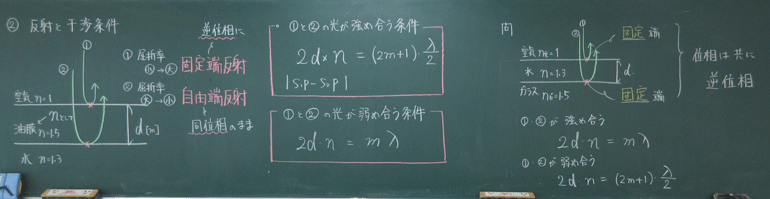 ② 反射と干渉条件
①
②
空気 n=1
油膜 nとして n=1.5
水 n=1.3
d [m]
逆位相に
① 屈折率
小→大
固定端反射
② 屈折率
大→小
自由端反射
同位相のまま
①と②の光が強め合う条件
2d×n = (2m+1)·λ/2
|S₁P-S₂P|
①と②の光が弱め合う条件
2d·n = mλ
問
①
②
固定端
空気 n=1
水 n=1.3
ガラス nG=1.5
d
固定端
位相は共に
逆位相
①②が強め合う
2d·n = mλ
①②が弱め合う
2d·n = (2m+1)·λ/2